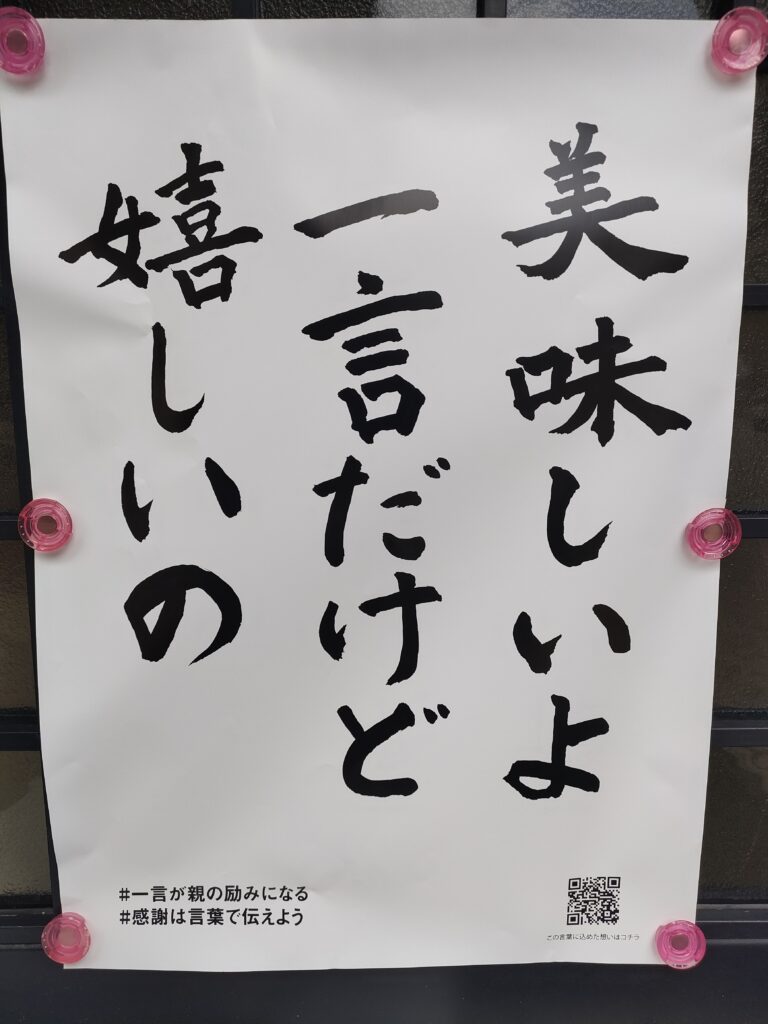 美味しいよ
一言だけど
嬉しいの
#一言が親の励みになる
#感謝は言葉で伝えよう
この言葉に込めた想いはコチラ